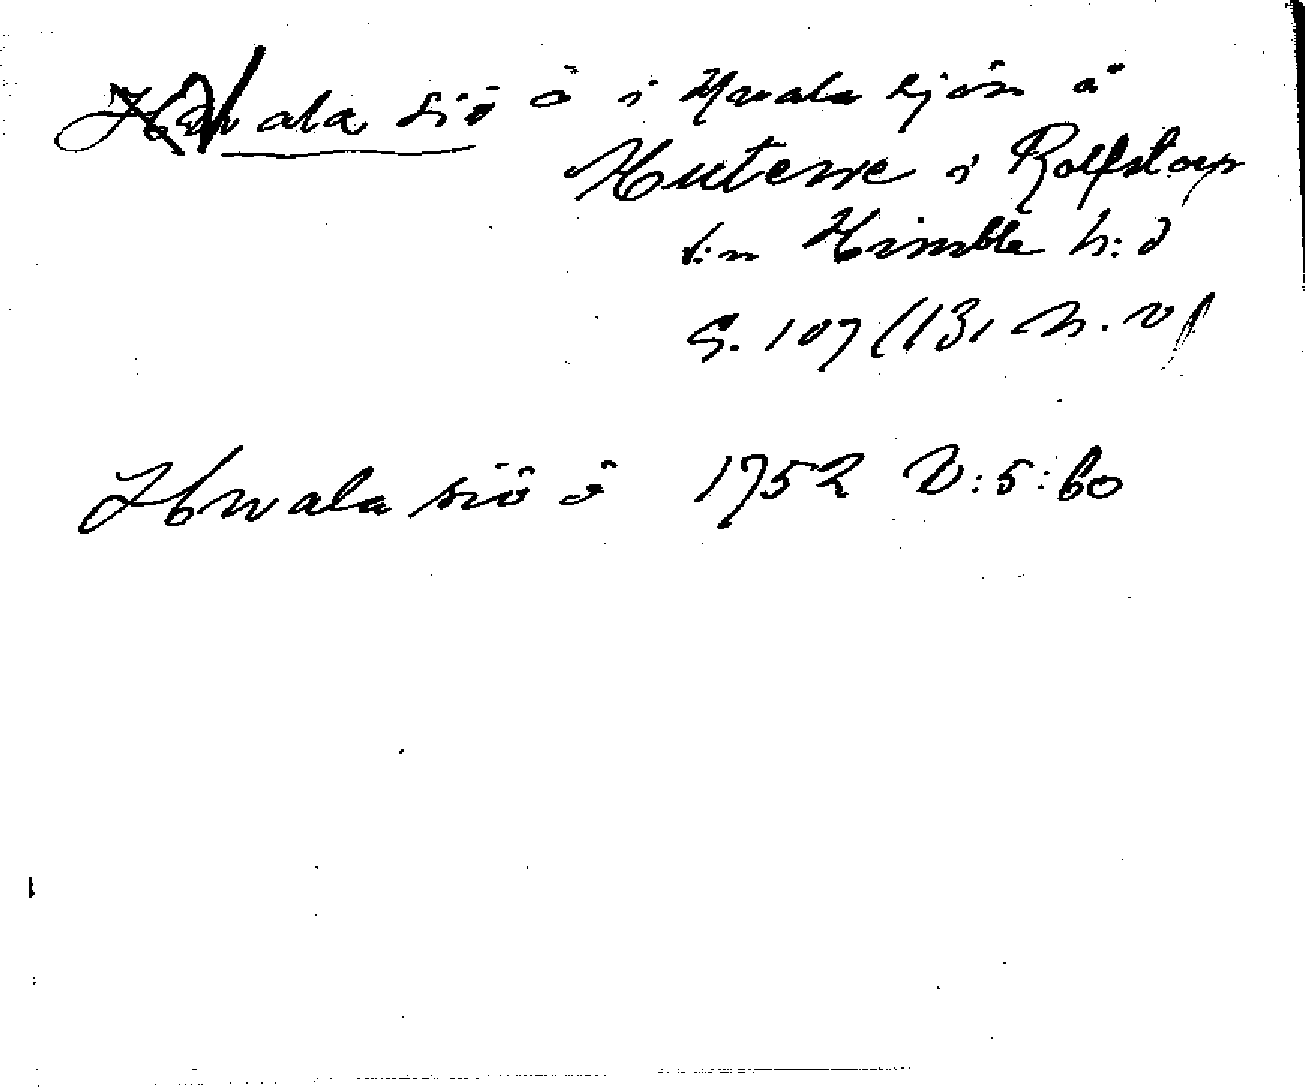 Hwala siö ö i Hvalasjön å
Kuterne i Rolfstorp
s:n Himble h:d
S. 107 (131 n. v)
Hwala siö ö 1752 V:5:60